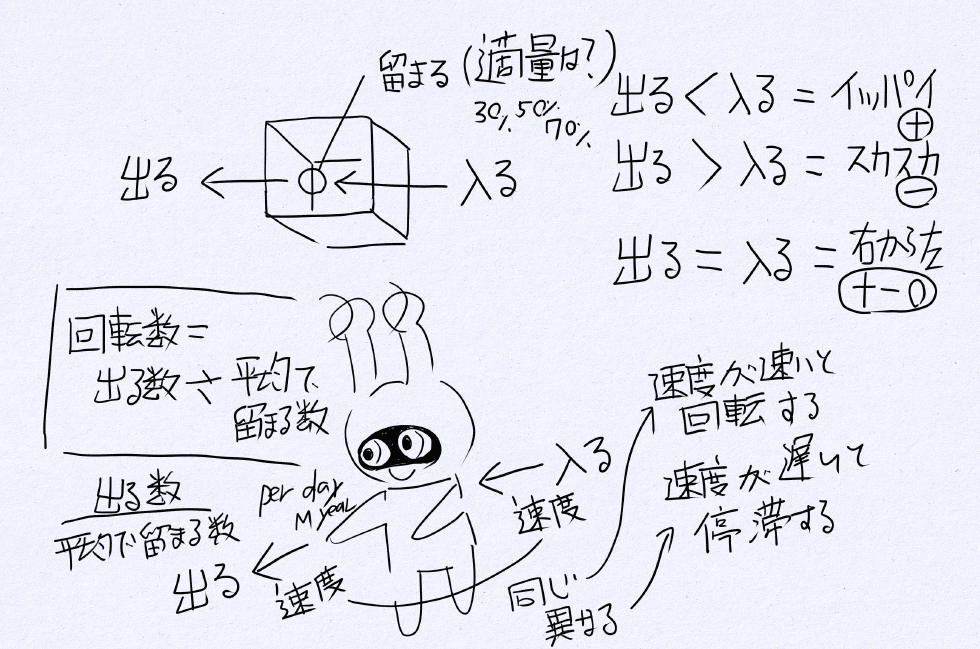 留まる(適量は?)
30% 50% 70%
出る
入る
出る < 入る = イッパイ
+
出る > 入る = スカスカ
−
出る = 入る = 右から左
+−0
回転数=
出る数÷平均で
留まる数
出る数
平均で留まる数
per day
M year
入る
速度
出る
速度
同じ
異なる
速度が速いと
回転する
速度が遅いて
停滞する